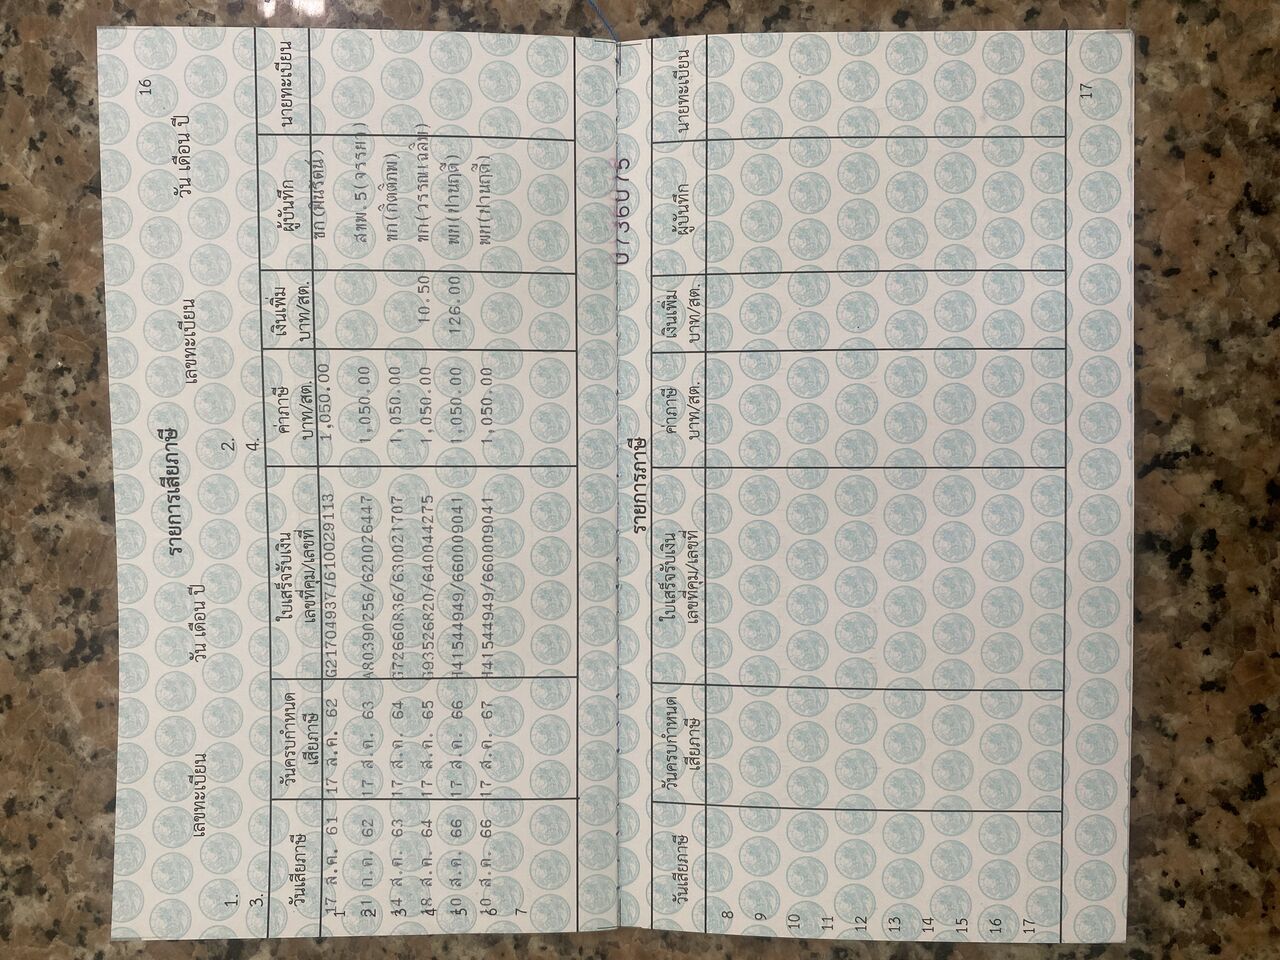 16
รายการเสียภาษี
เลขทะเบียน วัน เดือน ปี เลขทะเบียน วัน เดือน ปี
1. 2.
3. 4.
วันเสียภาษี วันครบกำหนด เสียภาษี ใบเสร็จรับเงิน เลขที่คุม/เลขที่ ค่าภาษี บาท/สต. เงินเพิ่ม บาท/สต. ผู้บันทึก นายทะเบียน
1 17 ส.ค. 61 17 ส.ค. 62 G21704937/610029113 1,050.00
2 ก.ค. 62 17 ส.ค. 63 80390256/620026447 1,050.00 สขพ.5
3 ส.ค. 63 17 ส.ค. 64 72660836/630021707 1,050.00 ขก(กิตติภพ)
4 ส.ค. 64 17 ส.ค. 65 93526820/640044275 1,050.00 10.50
5 ส.ค. 66 17 ส.ค. 66 41544949/660009041 1,050.00 126.00
6 ส.ค. 66 17 ส.ค. 67 41544949/660009041 1,050.00
7
0736075
รายการภาษี
วันเสียภาษี วันครบกำหนด เสียภาษี ใบเสร็จรับเงิน เลขที่คุม/เลขที่ ค่าภาษี บาท/สต. เงินเพิ่ม บาท/สต. ผู้บันทึก นายทะเบียน
8
9
10
11
12
13
14
15
16
17
17